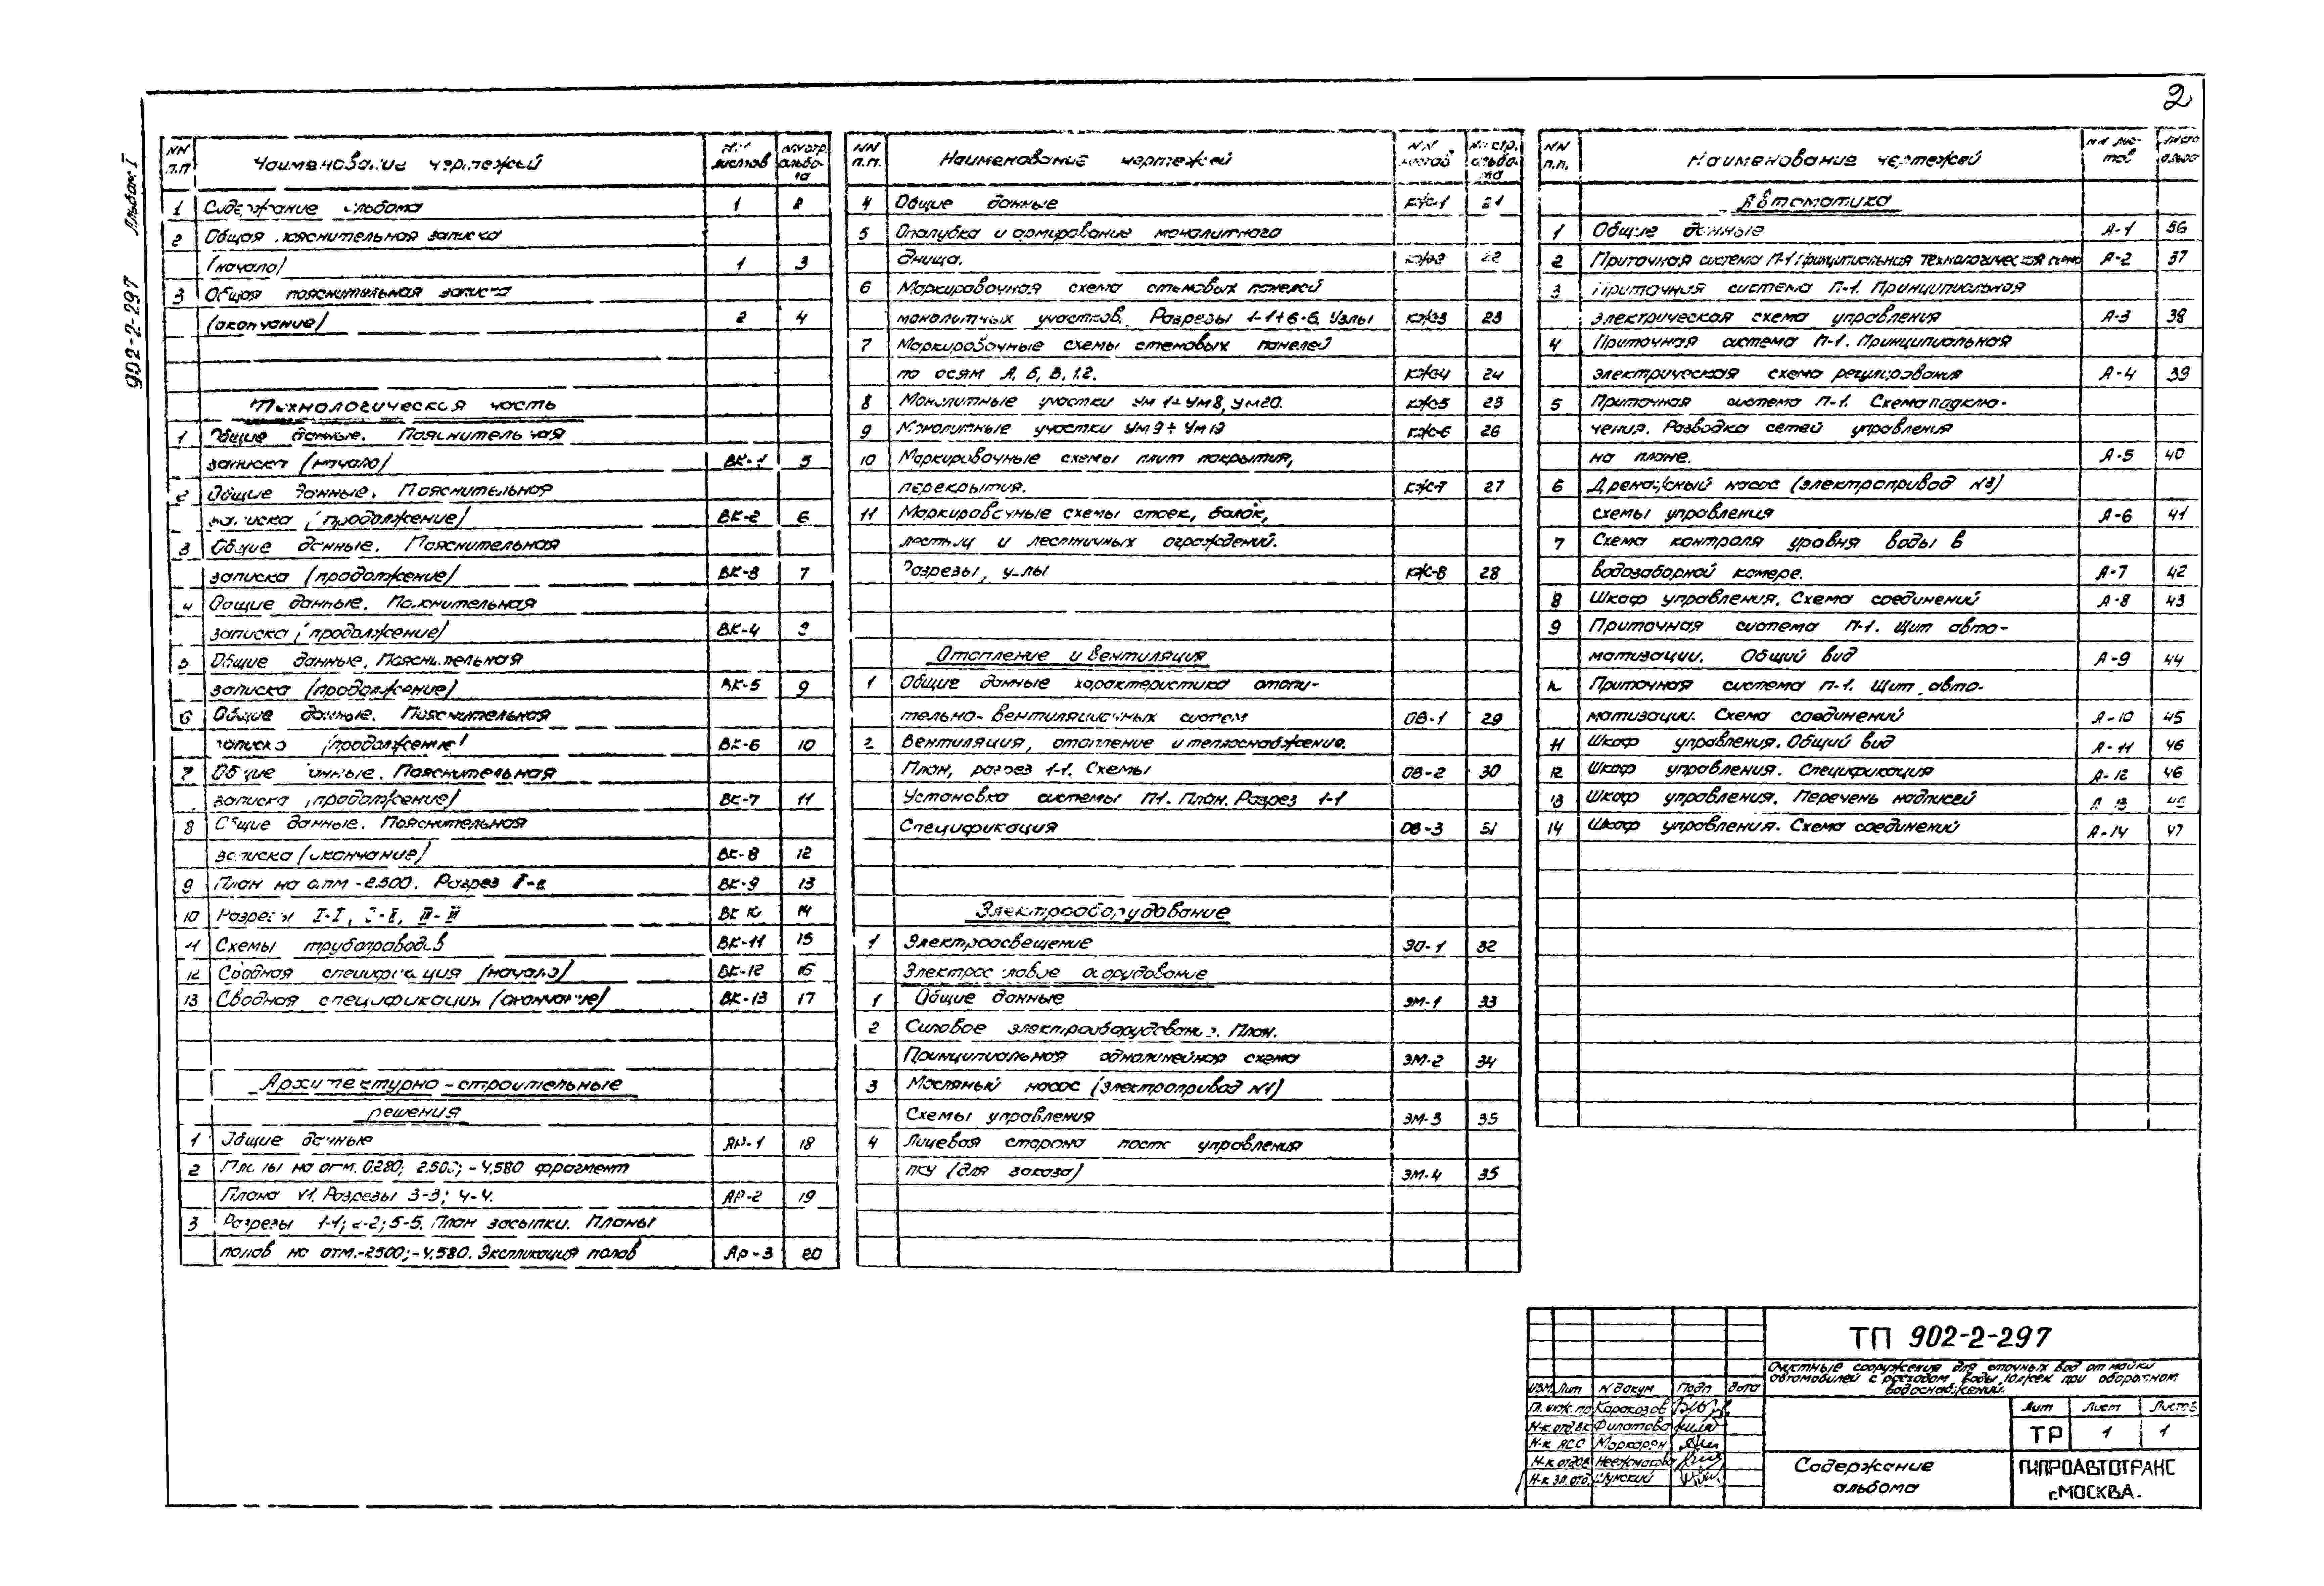 2
902-2-297 Альбом I
NN п.п Наименование чертежей листов альбо-
1 Содержание альбома 1 2
2 Общая пояснительная записка
(начало) 1 3
3 Общая пояснительная записка
(окончание) 2 4
Технологическая часть
1 Общие данные. Пояснительная
записка (начало) ВК-1 5
2 Общие данные. Пояснительная
записка (продолжение) ВК-2 6
3 Общие данные. Пояснительная
записка (продолжение) ВК-3 7
4 Общие данные. Пояснительная
записка (продолжение) ВК-4
5 Общие данные. Пояснительная
записка (продолжение) ВК-5 9
6 Общие данные. Пояснительная
записка (продолжение) ВК-6 10
7 Общие данные. Пояснительная
записка (продолжение) ВК-7 11
8 Общие данные. Пояснительная
записка (окончание) ВК-8 12
9 План на отм -2.500. Разрез ВК-9 13
10 Разрезы I-I, II-II, III-III ВК 10 14
11 Схемы трубопроводов ВК-11 15
12 Сводная спецификация (начало) ВК-12 16
13 Сводная спецификация (окончание) ВК-13 17
Архитектурно-строительные
решения
1 Общие данные АР-1 18
2 Планы на отм. 0.280; 2.500; -4.580 фрагмент
Плана Разрезы 3-3; 4-4. АР-2 19
3 Разрезы 1-1; 2-2; 5-5. План засыпки. Планы
полов на отм.-2500; -4.580. Экспликация полов Ар-3 20
NN п.п. Наименование чертежей NN листов
4 Общие данные КЖ-1 21
5 Опалубка и армирование монолитного
днища. 22
6 Маркировочная схема стеновых панелей
монолитных участков. Разрезы 1-1÷6-6. Узлы КЖ-3 23
7 Маркировочные схемы стеновых панелей
по осям А, Б, В, 1.2. КЖ-4 24
8 Монолитные участки Ум 1÷Ум8, Ум20. КЖ-5 25
9 Монолитные участки Ум9÷Ум19 КЖ-6 26
10 Маркировочные схемы плит покрытия,
перекрытия. КЖ-7 27
11 Маркировочные схемы стоек, балок,
лестниц и лестничных ограждений.
Разрезы, узлы КЖ-8 28
Отопление и вентиляция
1 Общие данные характеристика отопи-
тельно-вентиляционных систем ОВ-1 29
2 Вентиляция, отопление и теплоснабжение.
План, разрез 1-1. Схемы ОВ-2 30
Установка системы П1. План. Разрез 1-1
Спецификация ОВ-3 31
Электрооборудование
1 Электроосвещение ЭО-1 32
Электросиловое оборудование
1 Общие данные ЭМ-1 33
2 Силовое электрооборудование. План.
Принципиальная однолинейная схема ЭМ-2 34
3 Масляный насос (электропривод N1)
Схемы управления ЭМ-3 35
4 Лицевая сторона поста управления
ПКУ (для заказа) ЭМ-4 35
NN п.п. Наименование чертежей NN лис-тов
Автоматика
1 Общие данные А-1 36
2 Приточная система П-1 Принципиальная технологическая схема А-2 37
3 Приточная система П-1. Принципиальная
электрическая схема управления А-3 38
4 Приточная система П-1. Принципиальная
электрическая схема регулирования А-4 39
5 Приточная система П-1. Схема подклю-
чения. Разводка сетей управления
на плане. А-5 40
6 Дренажный насос (электропривод N3)
схемы управления А-6 41
7 Схема контроля уровня воды в
водозаборной камере. А-7 42
8 Шкаф управления. Схема соединений А-8 43
9 Приточная система П-1. Щит авто-
матизации. Общий вид А-9 44
Приточная система П-1. Щит авто-
матизации. Схема соединений А-10 45
11 Шкаф управления. Общий вид А-11 46
12 Шкаф управления. Спецификация А-12 46
13 Шкаф управления. Перечень надписей А-13
14 Шкаф управления. Схема соединений А-14 47
ТП 902-2-297
Очистные сооружения для сточных вод от мойки
автомобилей с расходом воды при оборотном
водоснабжении.
Изм. Лит N докум Подп Дата
Гл. инж. пр Каракозов
Н-к. отд. ВК Филатова
Н-к АСО Маркарян
Н-к отд ОВ
Н-к эл. отд.
Лит Лист Листов
ТР 1 1
Содержание
альбома
ГИПРОАВТОТРАНС
г.МОСКВА.